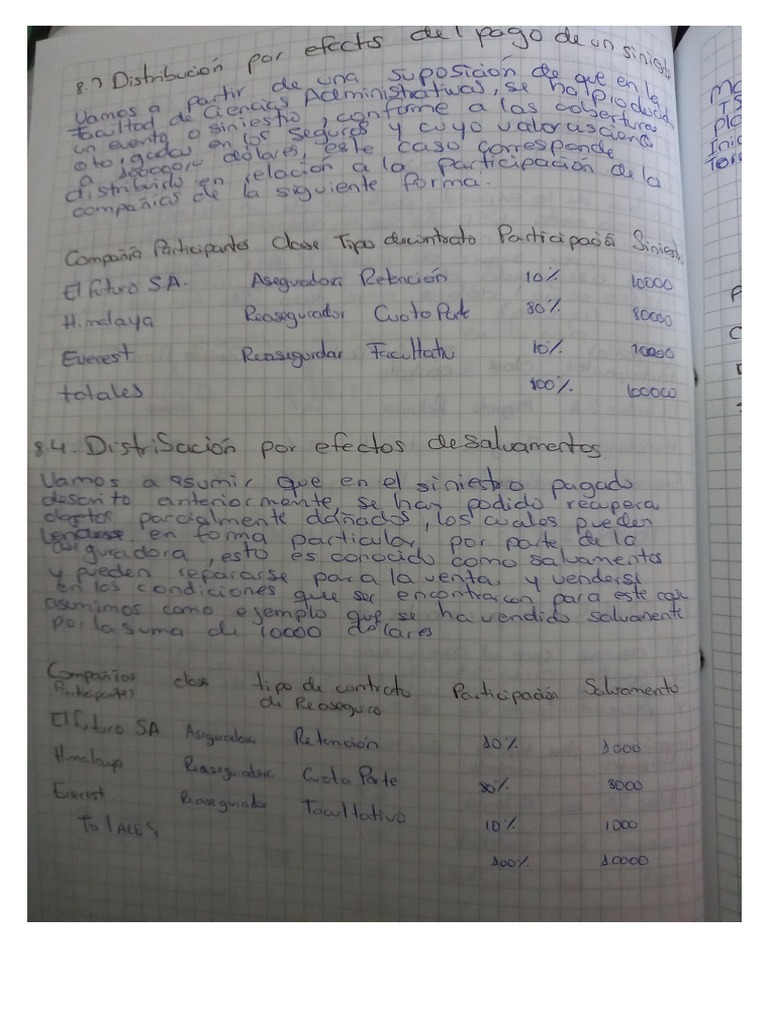 8.3 Distribución por efectos del pago de un siniest
Vamos a partir de una suposición de que en la
facultad de Ciencias Administrativas, se ha producid
un evento o siniestro, conforme a las coberturas
otorgadas en los seguros y cuyo valor asciend
a 100000 dólares, este caso corresponde
distribuirlo en relación a la participación de la
compañias de la siguiente forma.
Compañia Participantes Clase Tipo de contrato Participació Siniest
El futuro S.A. Asegurador Retención 10% 10000
Himalaya Reasegurador Cuota Parte 80% 80000
Everest Reasegurdar Facultativ 10% 10000
totales 100% 100000
8.4. Distribación por efectos de salvamentos
Vamos a asumir que en el siniestro pagado
descrito anteriormente, se han podido recupera
objetos parcialmente dañados, los cuales pueden
venderse en forma particular por parte de la
aseguradora, esto es conocido como salvamentos
y pueden repararse para la venta, y venderse
en las condiciones que se encontraron para este
asumimos como ejemplo que se ha vendido salvamente
por la suma de 10000 dólares
Compañias clase tipo de contrato Participación Salvamento
Participantes de Reaseguro
El futuro SA Asegurador Retención 10% 1000
Himalaya Reasegurador Cuota Parte 80% 8000
Everest Reasegurador Facultativo 10% 1000
ToTALES 100% 10000